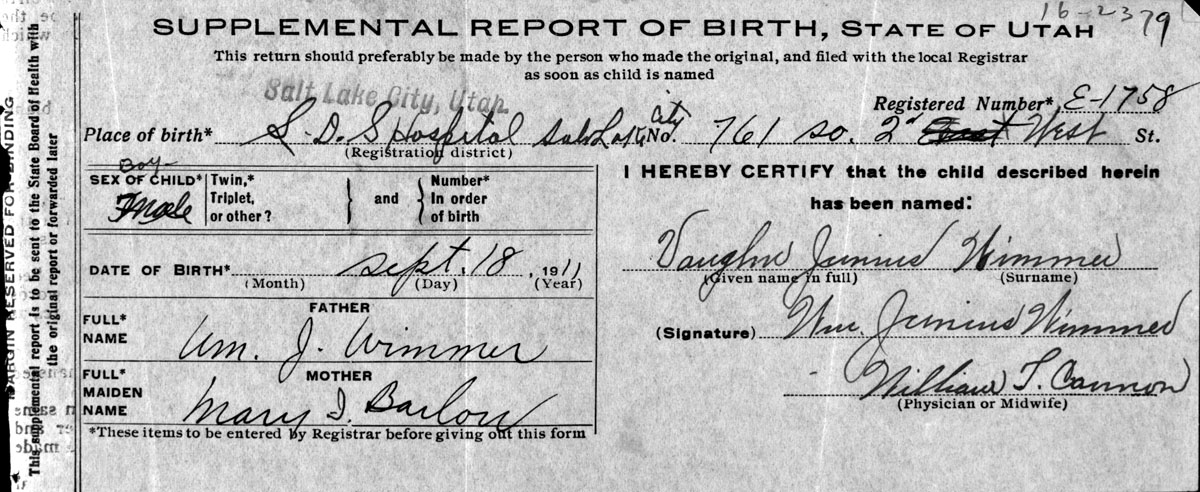 16-2379
SUPPLEMENTAL REPORT OF BIRTH, STATE OF UTAH
This return should preferably be made by the person who made the original, and filed with the local Registrar
as soon as child is named
Salt Lake City, Utah
Registered Number* E-1758
Place of birth* L-D.S Hospital Salt Lake City No. 761 So. 2d West St.
(Registration district)
Boy
SEX OF CHILD* Male
Twin,*
Triplet,
or other?
} and {
Number*
In order
of birth
DATE OF BIRTH* Sept. 18, 1911
(Month) (Day) (Year)
FATHER
FULL*
NAME
Wm. J. Wimmer
MOTHER
FULL*
MAIDEN
NAME
Mary I. Barlow
*These items to be entered by Registrar before giving out this form
I HEREBY CERTIFY that the child described herein
has been named:
Vaughn Junius Wimmer
(Given name in full) (Surname)
(Signature) Wm. Junius Wimmer
William T. Cannon
(Physician or Midwife)
MARGIN RESERVED FOR BINDING
This supplemental report is to be sent to the State Board of Health with
the original report or forwarded later